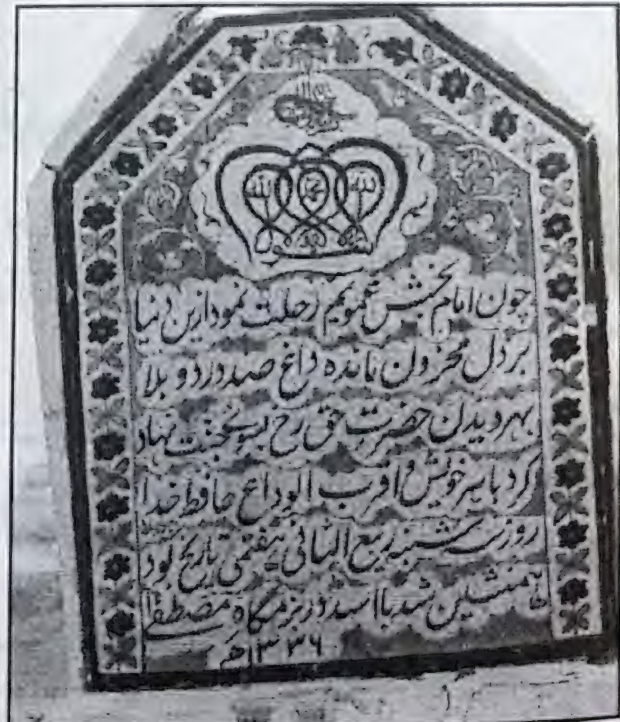 الله محمد الله
چون امام بخش عمویم رحلت نمود ازین دنیا
بر دل محزون مانده داغ صد درد و بلا
بهر دیدن حضرت حق رخ بسوے جنت نهاد
کرد با سیر خویش و اقرب الوداع حافظ خدا
روز شنبه ربیع الثانی هفتمی تاریخ بود
همنشین شد با اسد در بزمگاه مصطفیٰ
۱۳۳۶ھ